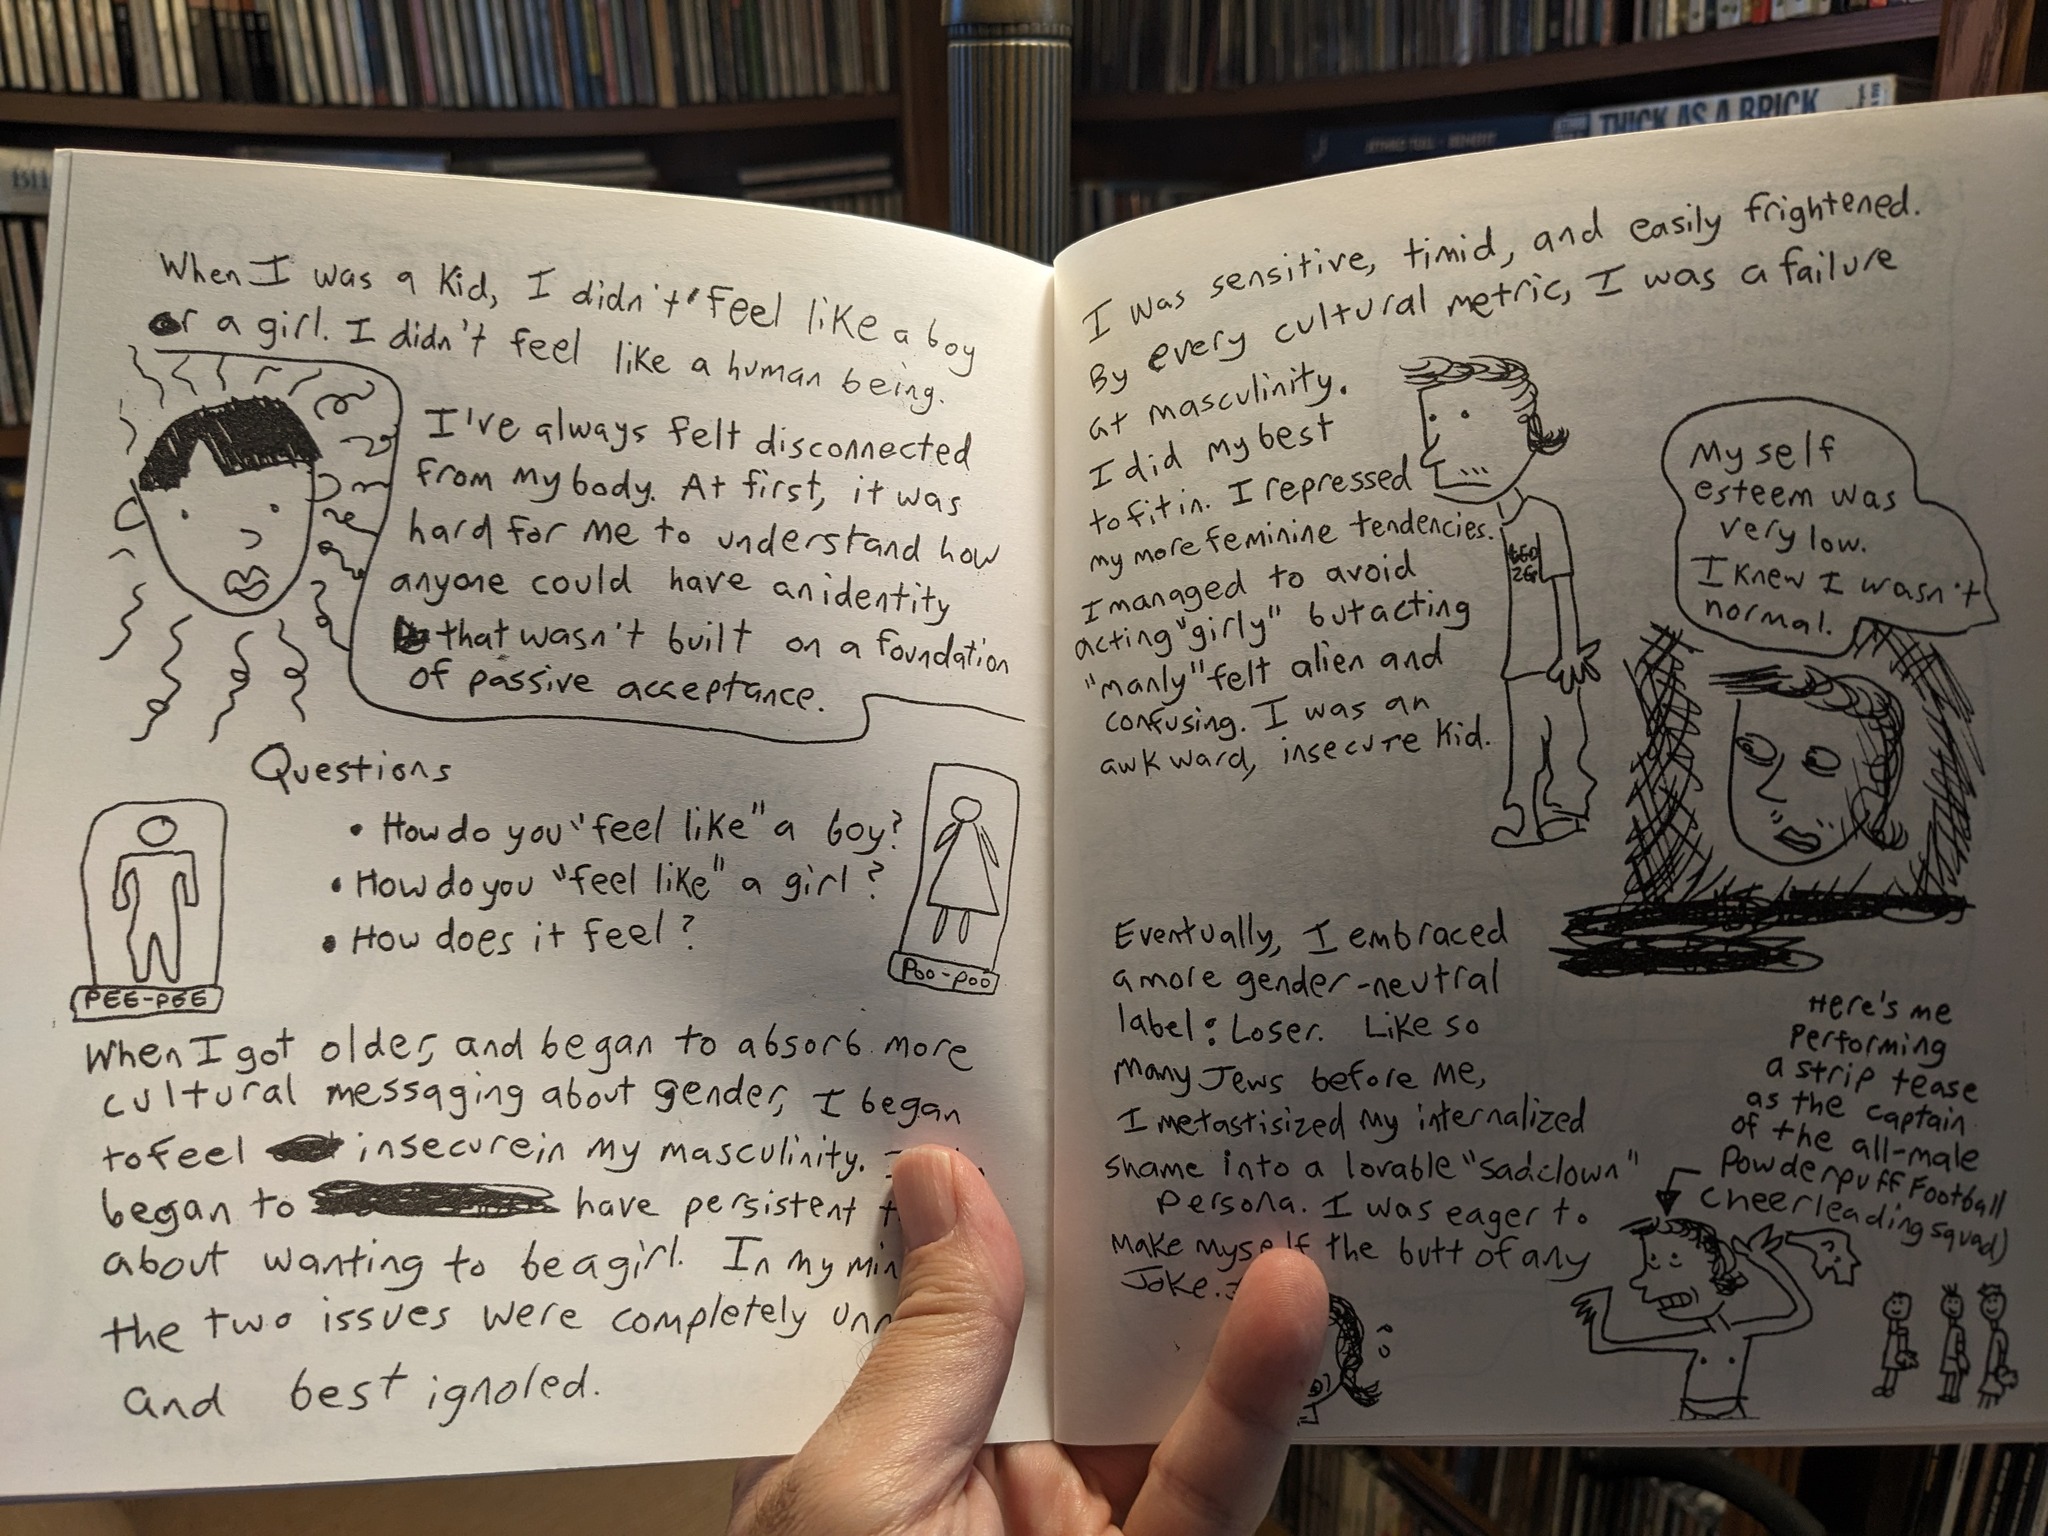 THICK AS A BRICK
JETHRO TULL - BENEFIT
When I was a kid, I didn't feel like a boy
or a girl. I didn't feel like a human being.
I've always felt disconnected
from my body. At first, it was
hard for me to understand how
anyone could have an identity
that wasn't built on a foundation
of passive acceptance.
Questions
• How do you "feel like" a boy?
• How do you "feel like" a girl?
• How does it feel?
PEE-PEE
Poo-poo
When I got older, and began to absorb more
cultural messaging about gender, I began
to feel insecure in my masculinity.
began to have persistent
about wanting to be a girl. In my
the two issues were completely
and best ignored.
I was sensitive, timid, and easily frightened.
By every cultural metric, I was a failure
at masculinity.
I did my best
to fit in. I repressed
my more feminine tendencies.
I managed to avoid
acting "girly" but acting
"manly" felt alien and
confusing. I was an
awkward, insecure kid.
My self
esteem was
very low.
I knew I wasn't
normal.
Eventually, I embraced
a more gender-neutral
label: Loser. Like so
many Jews before me,
I metastisized my internalized
shame into a lovable "sadclown"
persona. I was eager to
make myself the butt of any
joke.
Here's me
performing
a strip tease
as the captain
of the all-male
Powderpuff Football
cheerleading squad)